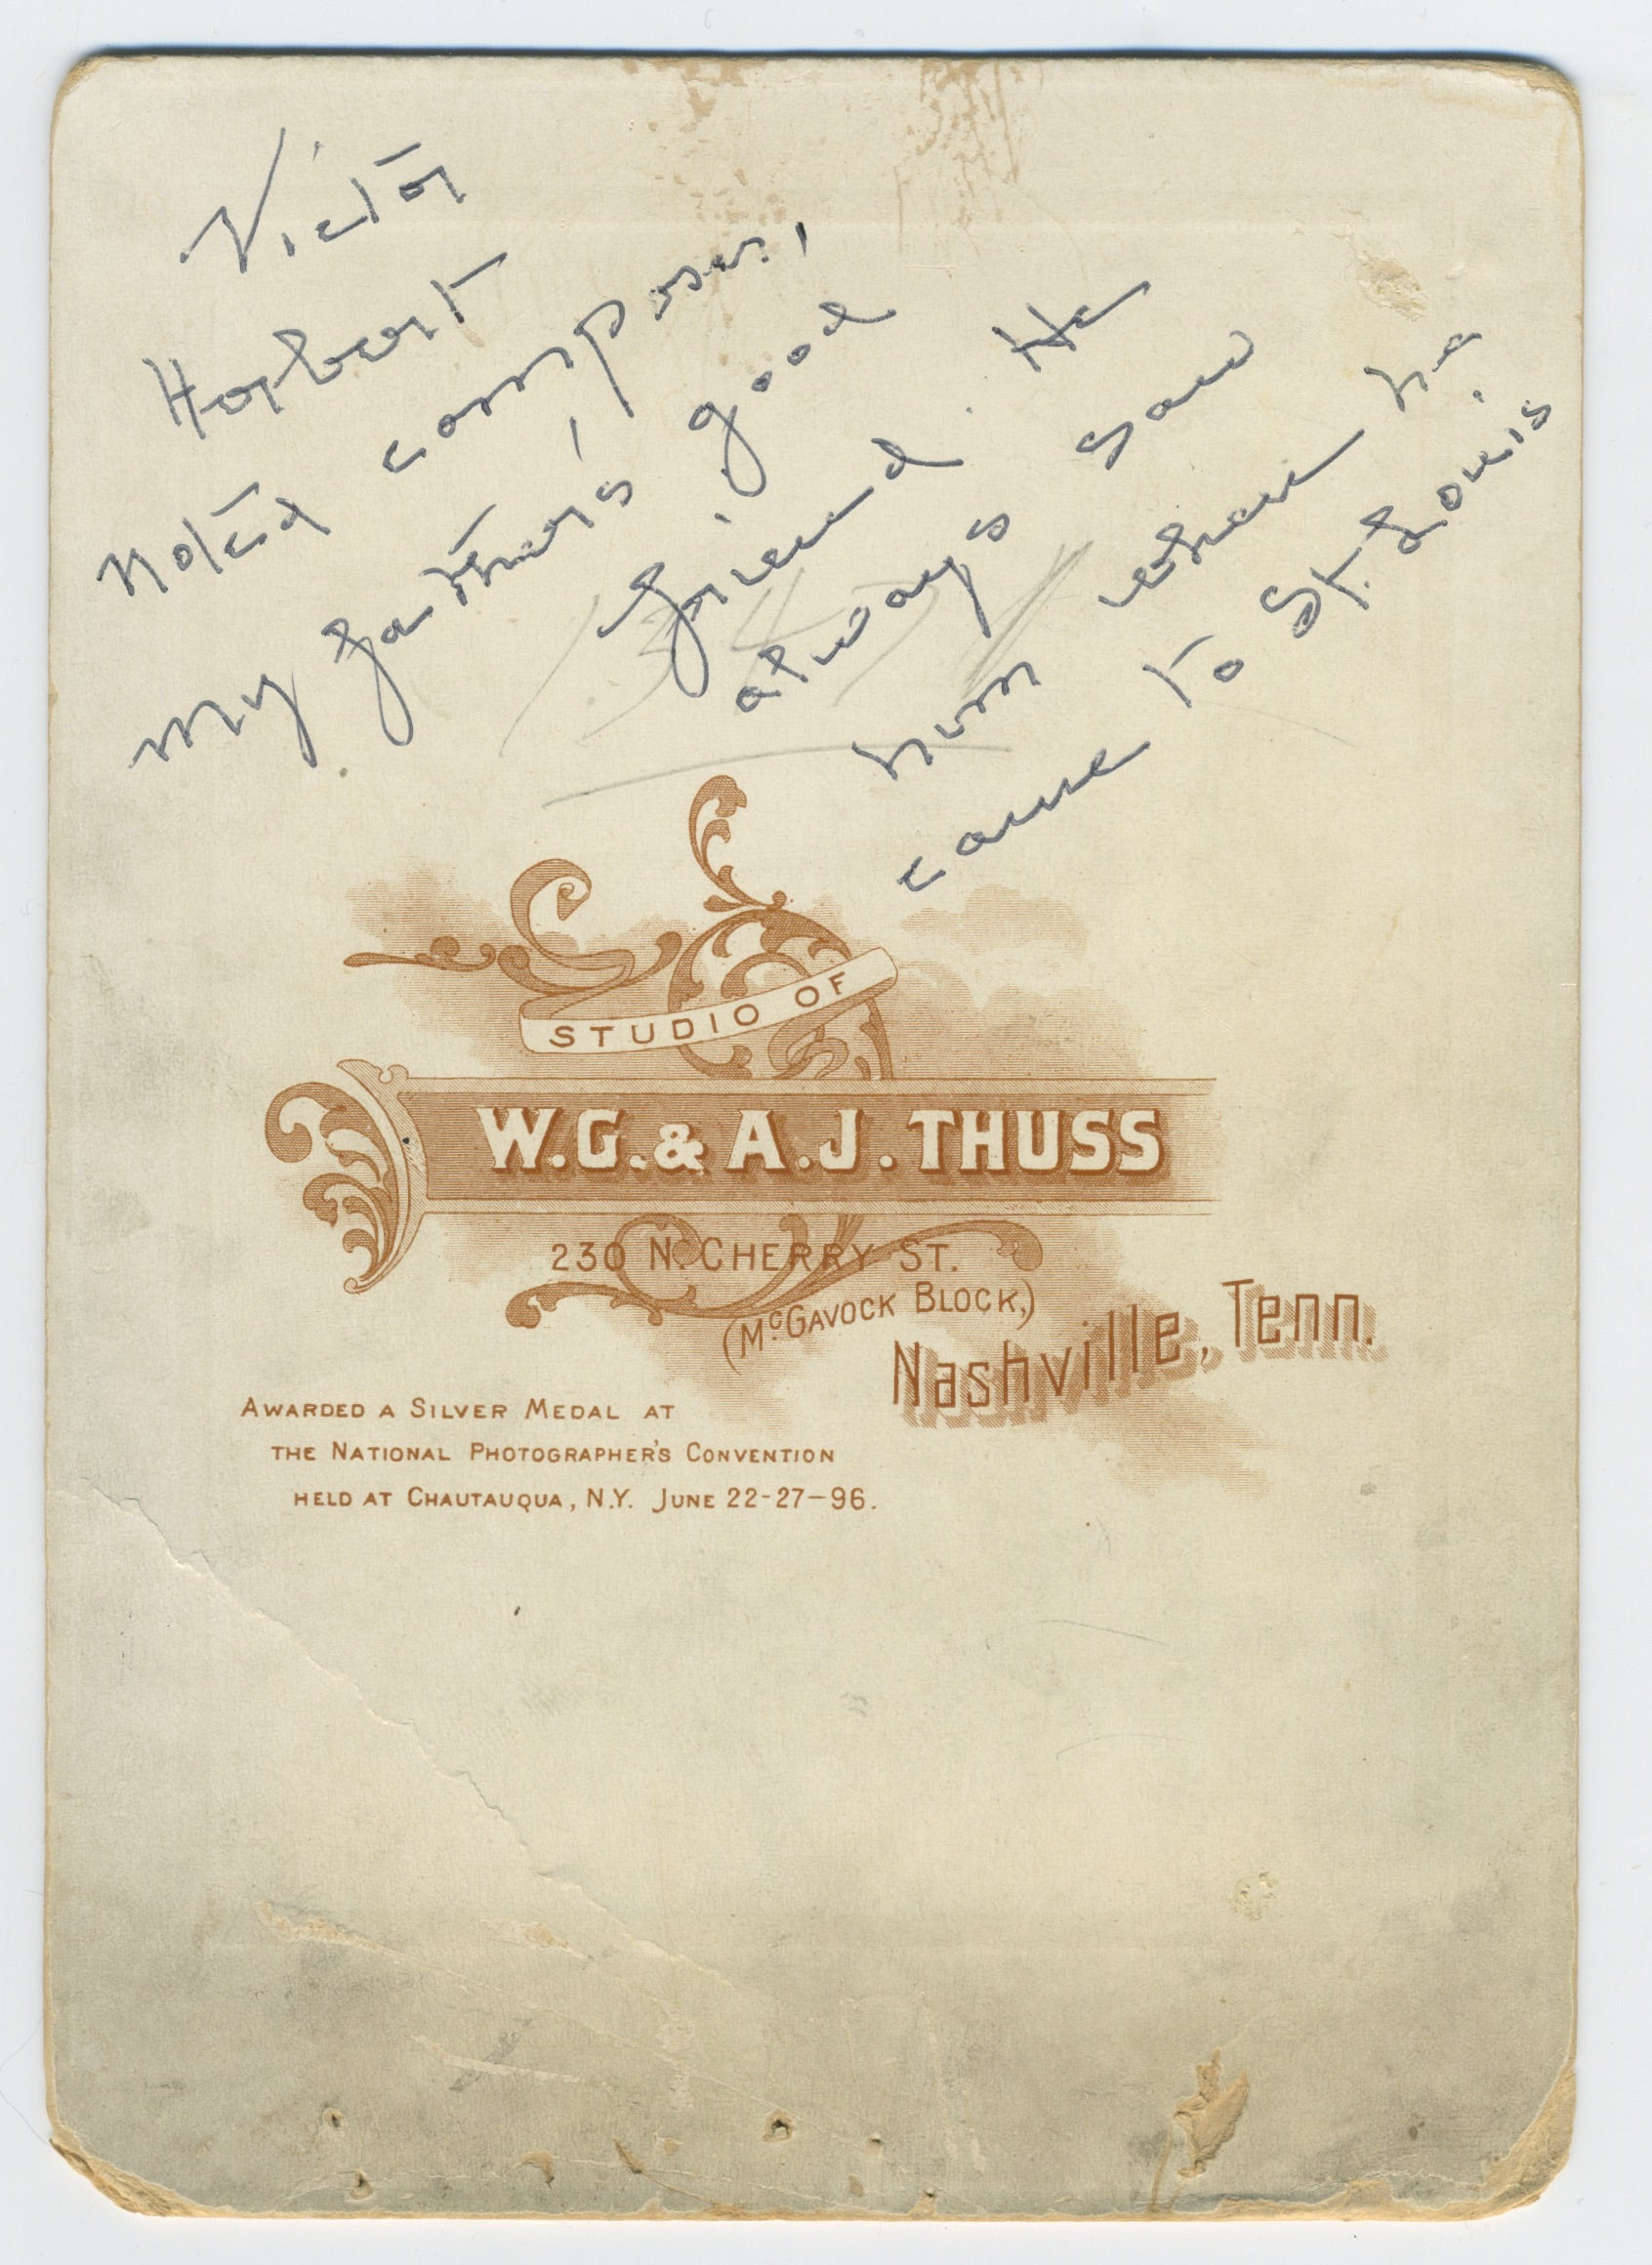 Victor
Herbert
noted composer,
my father's good
friend. He
always saw
him when he
came to St. Louis
STUDIO OF
W.G. & A.J. THUSS
230 N. CHERRY ST.
(McGAVOCK BLOCK,)
Nashville, Tenn.
AWARDED A SILVER MEDAL AT
THE NATIONAL PHOTOGRAPHER'S CONVENTION
HELD AT CHAUTAUQUA, N.Y. JUNE 22-27-96.